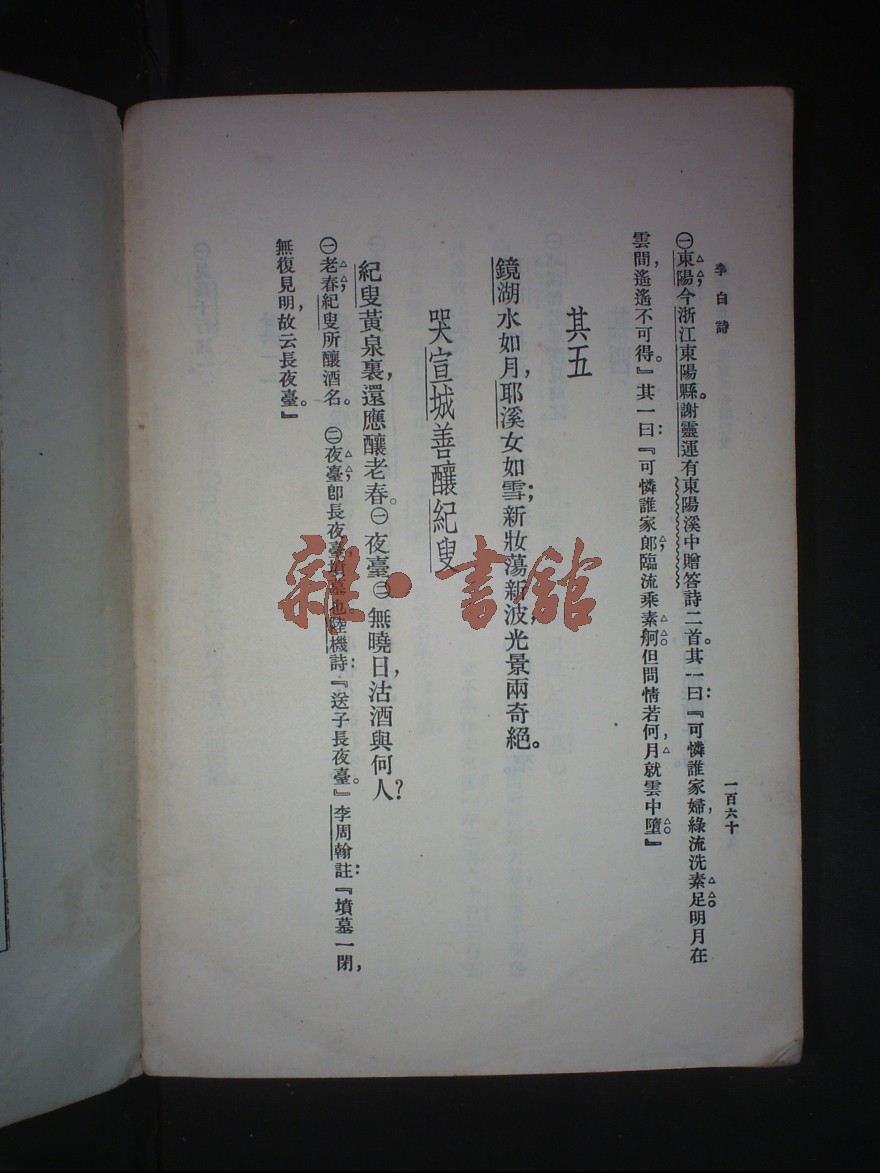 李白詩
一百六十
㊀東陽今浙江東陽縣。謝靈運有東陽溪中贈答詩二首。其一曰：『可憐誰家婦，綠流洗素足明月在
雲間，遙遙不可得。』其一曰：『可憐誰家郎，臨流乘素舸但問情若何，月就雲中墮』
其五
鏡湖水如月，耶溪女如雪；新妝蕩新波，光景兩奇絕。
哭宣城善釀紀叟
紀叟黃泉裏，還應釀老春。㊀夜臺㊁無曉日，沽酒與何人？
㊀老春紀叟所釀酒名。㊁夜臺卽長夜臺，墳墓也。陸機詩：『送子長夜臺。』李周翰註：『墳墓一閉，
無復見明，故云長夜臺。』
雜·書館